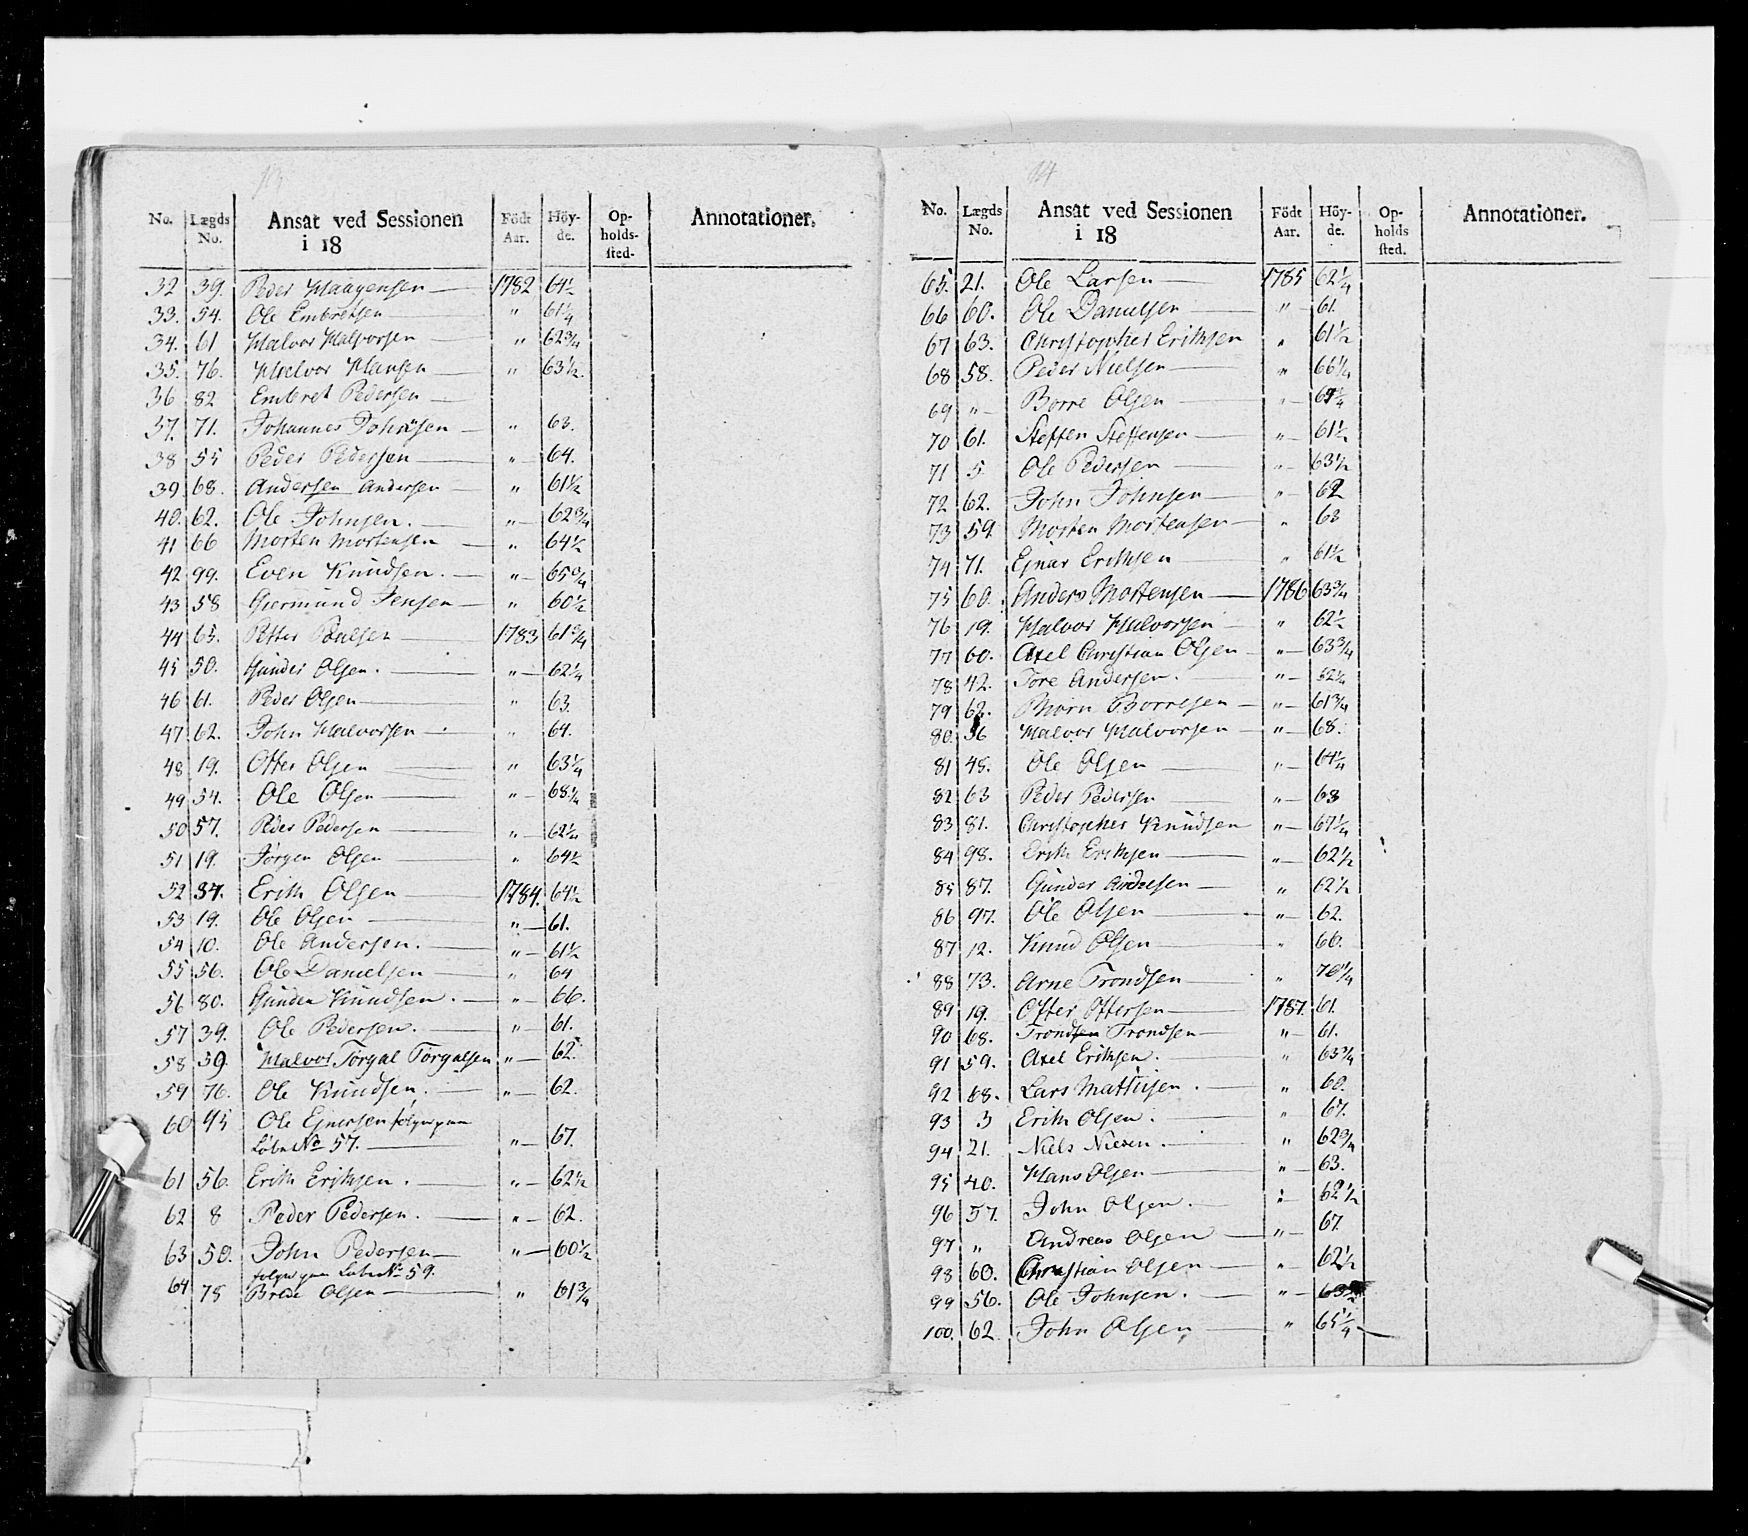 No. Lægds No. Ansat ved Sessionen i 18 Födt Aar. Höy- de. Op- holds- sted- Annotationer.
32 39. Peder Haagensen — 1782 64½
33. 54. Ole Embretsen — " 61¼
34. 61 Halvor Halvorsen — " 62¾
35. 76. Halvor Hansen — " 63½.
36 82 Embret Pedersen —
37. 71. Johannes Johnsen — " 63.
38 55 Peder Pedersen — " 64.
39. 68. Andersen Andersen — " 61½
40. 62. Ole Johnsen. — " — 62¾
41 66 Morten Mortensen — " 64½
42 99. Even Knudsen. — " — 65¾
43 58 Giermund Jensen — " 60½
44 65. Petter Poulsen — 1783 61¾
45 50. Gunder Olsen. — " — 62¼
46 61. Peder Olsen — " 63.
47 62. John Halvorsen — " 64.
48 19. Otter Olsen — " 63¼
49 54. Ole Olsen — " — 68¼
50 57. Peder Pedersen — " — 62¼
51 19. Jörgen Olsen — " 64½
52 34. Erik Olsen — 1784. 64½
53 19. Ole Olsen — " — 61.
54 10. Ole Andersen. — " — 61½
55 56. Ole Danielsen — " 64
56 80. Gunder Knudsen. — " — 66.
57 39. Ole Pedersen. — " — 61.
58 39. Halvor Torgal Torgalsen " — 62.
59 76. Ole Knudsen. — " — 62.
60 95 Ole Ejnersen
Löbe No 57. — " — 67.
61 56. Erik Eriksen. — " — 62½
62 8 Peder Pedersen. — " — 62.
63 50. John Pedersen — " — 60½
Löbe No 59.
64 75 Brede Olsen — " 61¾
14
No. Lægds No. Ansat ved Sessionen i 18 Födt Aar. Höy- de. Op- holds sted. Annotationer.
65. 21. Ole Larsen — 1785 62¼
66 60. Ole Danielsen — " — 61.
67 63. Christopher Eriksen " 61½
68 58. Peder Nielsen — " 66¼
69 " — Borre Olsen — " —
70 61. Steffen Steffensen — " — 61½
71 5 Ole Pedersen — " — 63½
72 62. John Johnsen — " — 62
73 59. Morten Mortensen — " 63
74 71. Ejnar Eriksen " 61½
75 60. Anders Mortensen — 1786 63¾
76 19. Halvor Halvorsen — " 62½
77 60. Axel Christian Olsen — " — 63¾
78 42. Tore Andersen. " — 62¼
79 62. Biörn Borresen — " — 61¾
80. 36 Halvor Halvorsen — " — 68.
81 45. Ole Olsen — " — 64¼
82 63 Peder Pedersen — " — 63
83 81. Christopher Knudsen " — 67¼
84 98. Erik Eriksen — " — 62½
85 87. Gunder — " 62½
86 97. Ole Olsen — " — 62.
87 12. Knud Olsen — " 60.
88 73. Arne Trondsen — " 70¼
89 19. Otter Ottersen — 1787. 61.
90 68. Trondsen Trondsen — " — 61.
91 59. Axel Eriksen. — " 63¾
92 68. Lars Mathisen. — " 60.
93 3 Erik Olsen. — " 67.
94 21. Niels Nielsen. — " 62¾
95 40. Hans Olsen — " — 63.
96 57. John Olsen. — " — 62½
97 " Andreas Olsen — " — 67.
98 60. Christian Olsen — " 62½
99 56. Ole Johnsen. — " —
100. 62 John Olsen — " 65¼ —